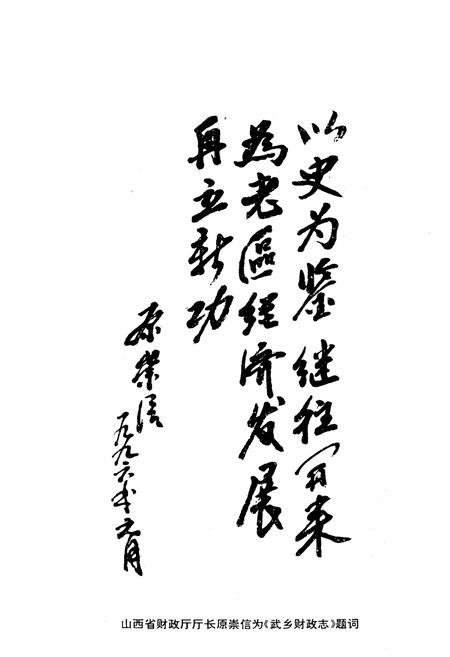 以史为鉴继往开来
為老區经济发展
再立新功
原崇信
一九九六年元月
山西省财政厅厅长原崇信为《武乡财政志》题词